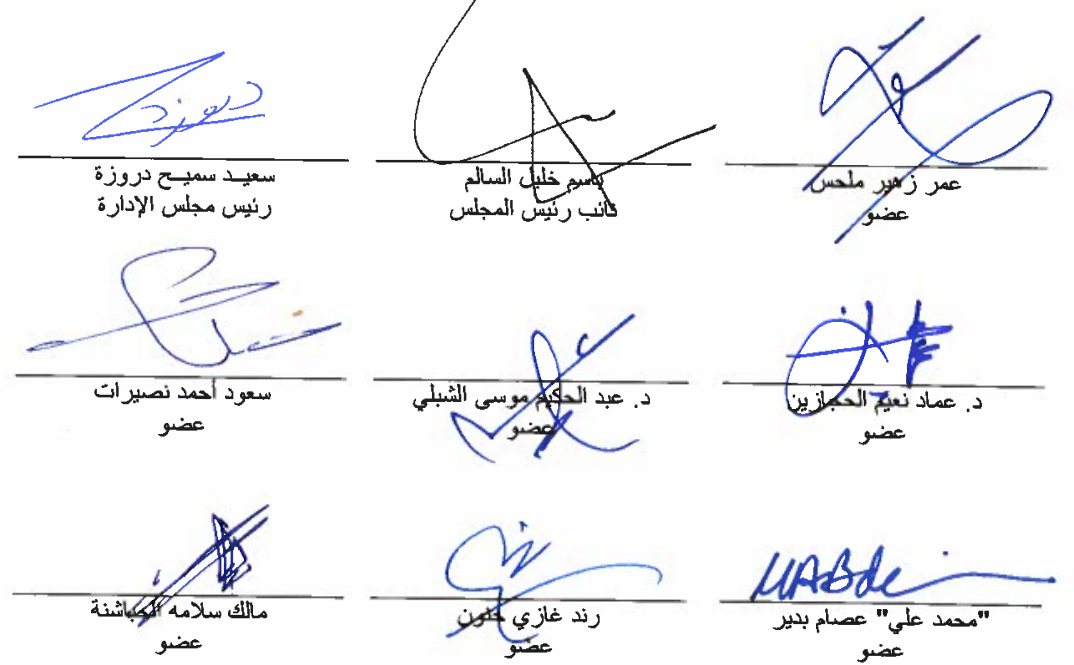 سعيد سميح دروزة
رئيس مجلس الإدارة
باسم خليل السالم
نائب رئيس المجلس
عمر زهير ملحس
عضو
سعود أحمد نصيرات
عضو
د. عبد الحكيم موسى الشبلي
عضو
د. عماد نعيم الحجازين
عضو
مالك سلامه الحباشنة
عضو
رند غازي حنون
عضو
"محمد علي" عصام بدير
عضو